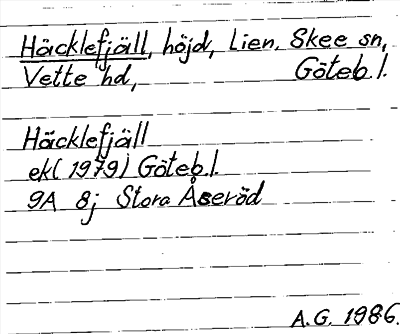 Häcklefjäll, höjd, Lien, Skee sn,
Vette hd, Göteb.l.
Häcklefjäll
ek (1979) Göteb.l.
9A 8j Stora Åseröd
A.G. 1986.